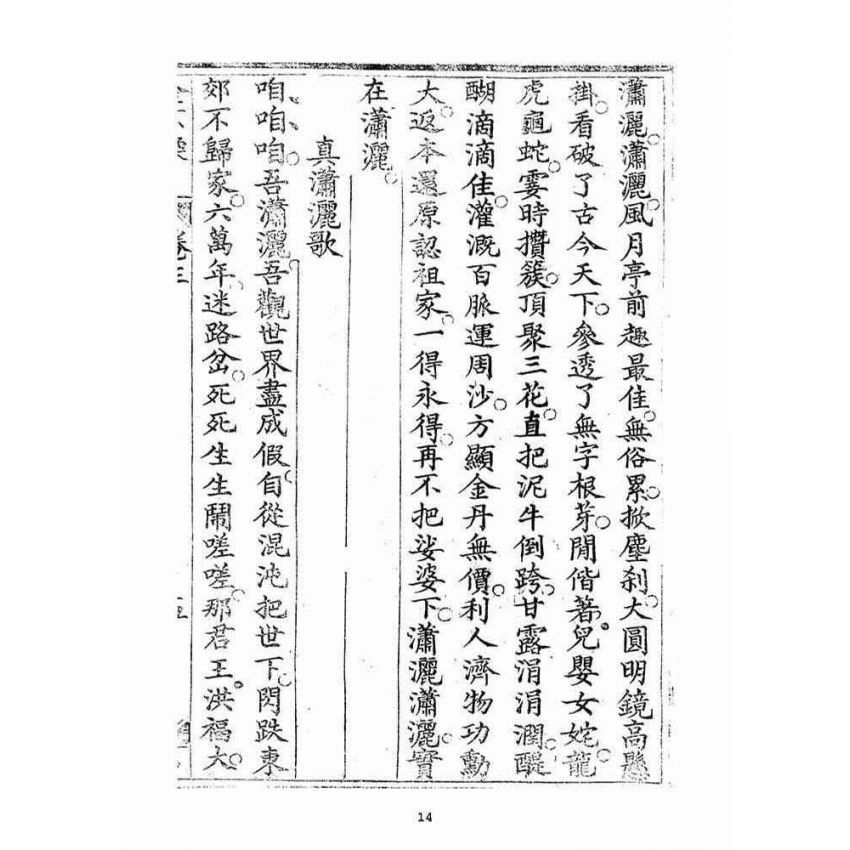 瀟灑。瀟灑。風月亭前趣最佳。無俗累。掀塵刹。大圓明鏡高懸
掛。看破了古今天下。參透了無字根芽。閒偕著。兒嬰女姹。龍
虎龜蛇。霎時攢簇。頂聚三花。直把泥牛倒跨。甘露涓涓潤。醍
醐滴滴佳。灌溉百脈運周沙。方顯金丹無價。利人濟物功勳
大。返本還原認祖家。一得永得。再不把娑婆下。瀟灑瀟灑。實
在瀟灑。
真瀟灑歌
咱咱咱。吾瀟灑。吾觀世界盡成假。自從混沌把世下。閃跌東
郊不歸家。六萬年。迷路岔。死死生生鬧嗟嗟。那君王。洪福大。
卷三
14